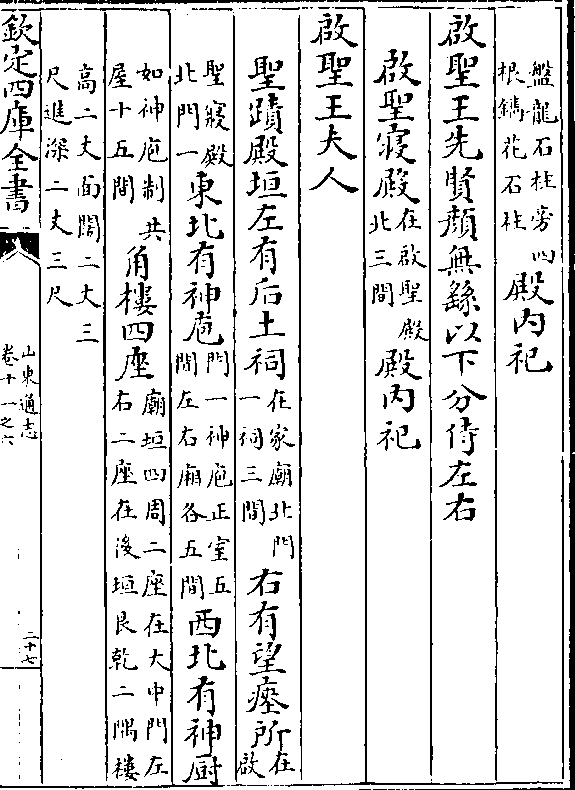 盤龍石柱旁四根鐫花石柱殿内祀
啟聖王先賢顔無繇以下分侍左右
啟聖寢殿在啟聖殿北三間殿内祀
啟聖王夫人
聖蹟殿垣左有后土祠在家廟北門一祠三間右有望瘞所在啟
聖寢殿北門一東北有神庖門一神庖正室五間左右廂各五間西北有神厨
如神庖制共屋十五間角樓四座廟垣四周二座在大中門左右二座在後垣艮乾二隅樓
高二丈面闊二丈三尺進深二丈三尺
欽定四庫全書
山東通志
卷十一之六
二十七